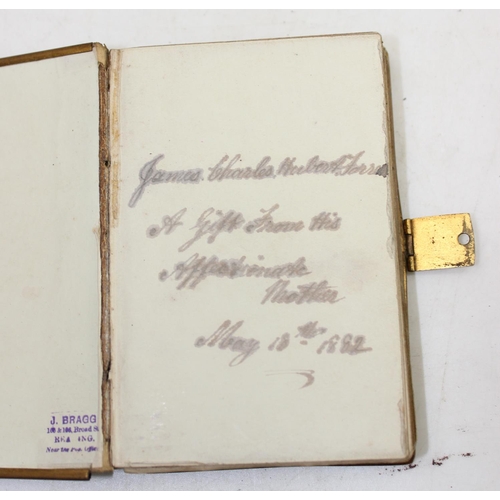 James Charles Hubert
A Gift From His
Affectionate
Mother
May 13th 1882
J. BRAGG
Broad St
READING.
Near the Post Office